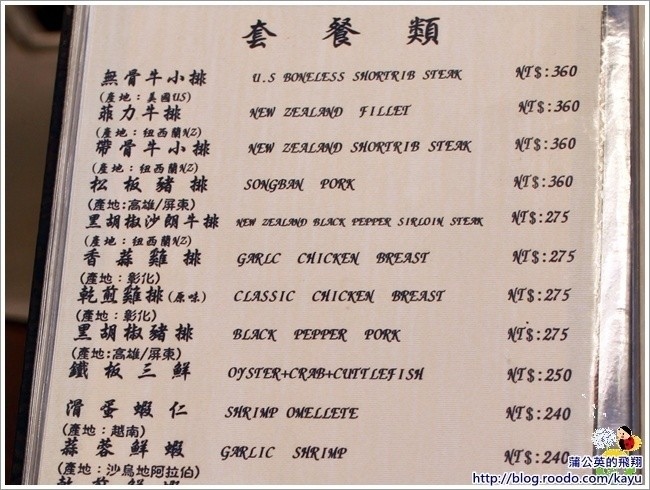 套餐類
無骨牛小排 U.S BONELESS SHORTRIB STEAK NT$:360
(產地：美國US)
菲力牛排 NEW ZEALAND FILLET NT$:360
(產地：紐西蘭NZ)
帶骨牛小排 NEW ZEALAND SHORTRIB STEAK NT$:360
(產地：紐西蘭NZ)
松板豬排 SONGBAN PORK NT$:360
(產地:高雄/屏東)
黑胡椒沙朗牛排 NEW ZEALAND BLACK PEPPER SIRLOIN STEAK NT$:275
(產地：紐西蘭NZ)
香蒜雞排 GARLC CHICKEN BREAST NT$:275
(產地：彰化)
乾煎雞排(原味) CLASSIC CHICKEN BREAST NT$:275
(產地：彰化)
黑胡椒豬排 BLACK PEPPER PORK NT$:275
(產地:高雄/屏東)
鐵板三鮮 OYSTER+CRAB+CUTTLEFISH NT$:250
滑蛋蝦仁 SHRIMP OMELLETE NT$:240
(產地：越南)
蒜蓉鮮蝦 GARLIC SHRIMP NT$:240
(產地：沙烏地阿拉伯)
蒲公英的飛翔
http://blog.roodo.com/kayu